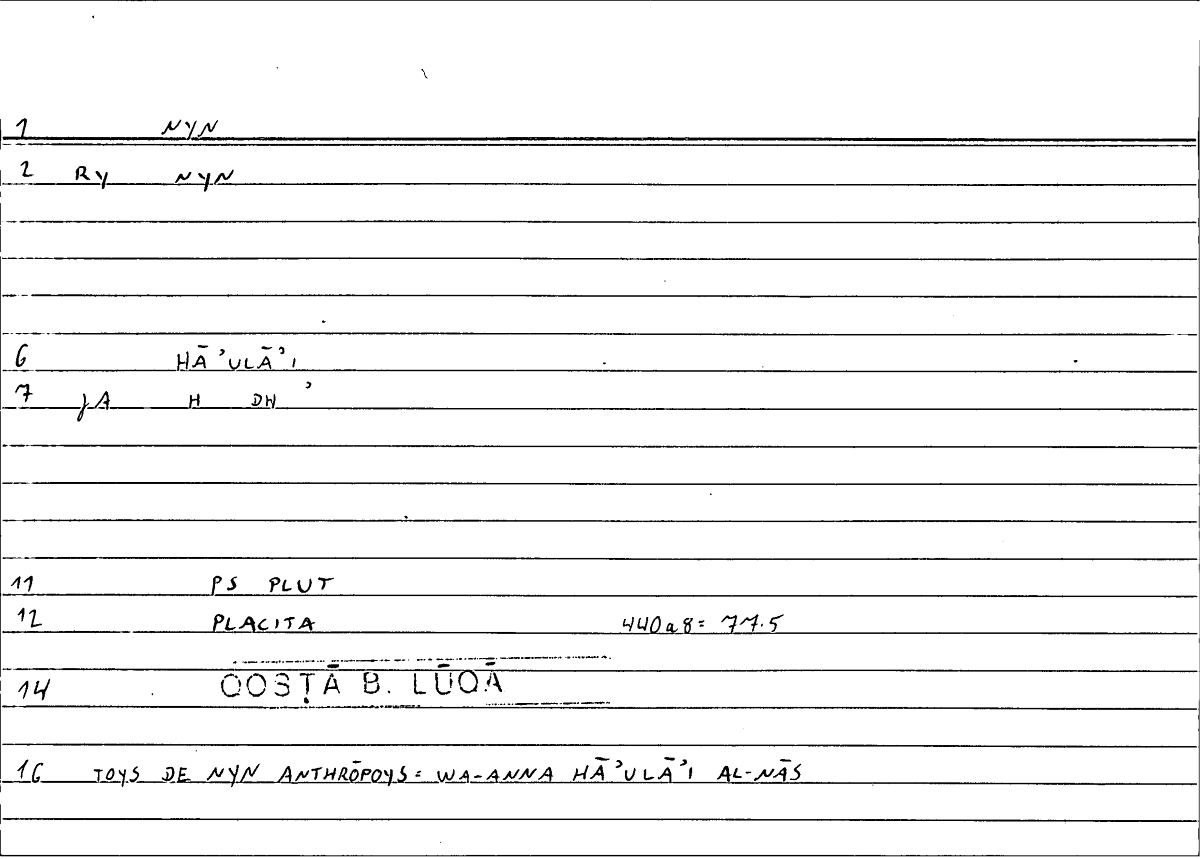 1 NYN
2 RY NYN
6 HĀʾULĀʾI
7 JA H DH ʾ
11 PS PLUT
12 PLACITA 440a8= 77.5
14 QOSṬĀ B. LŪQĀ
16 TOYS DE NYN ANTHRŌPOYS= WA-ANNA HĀʾULĀʾI AL-NĀS